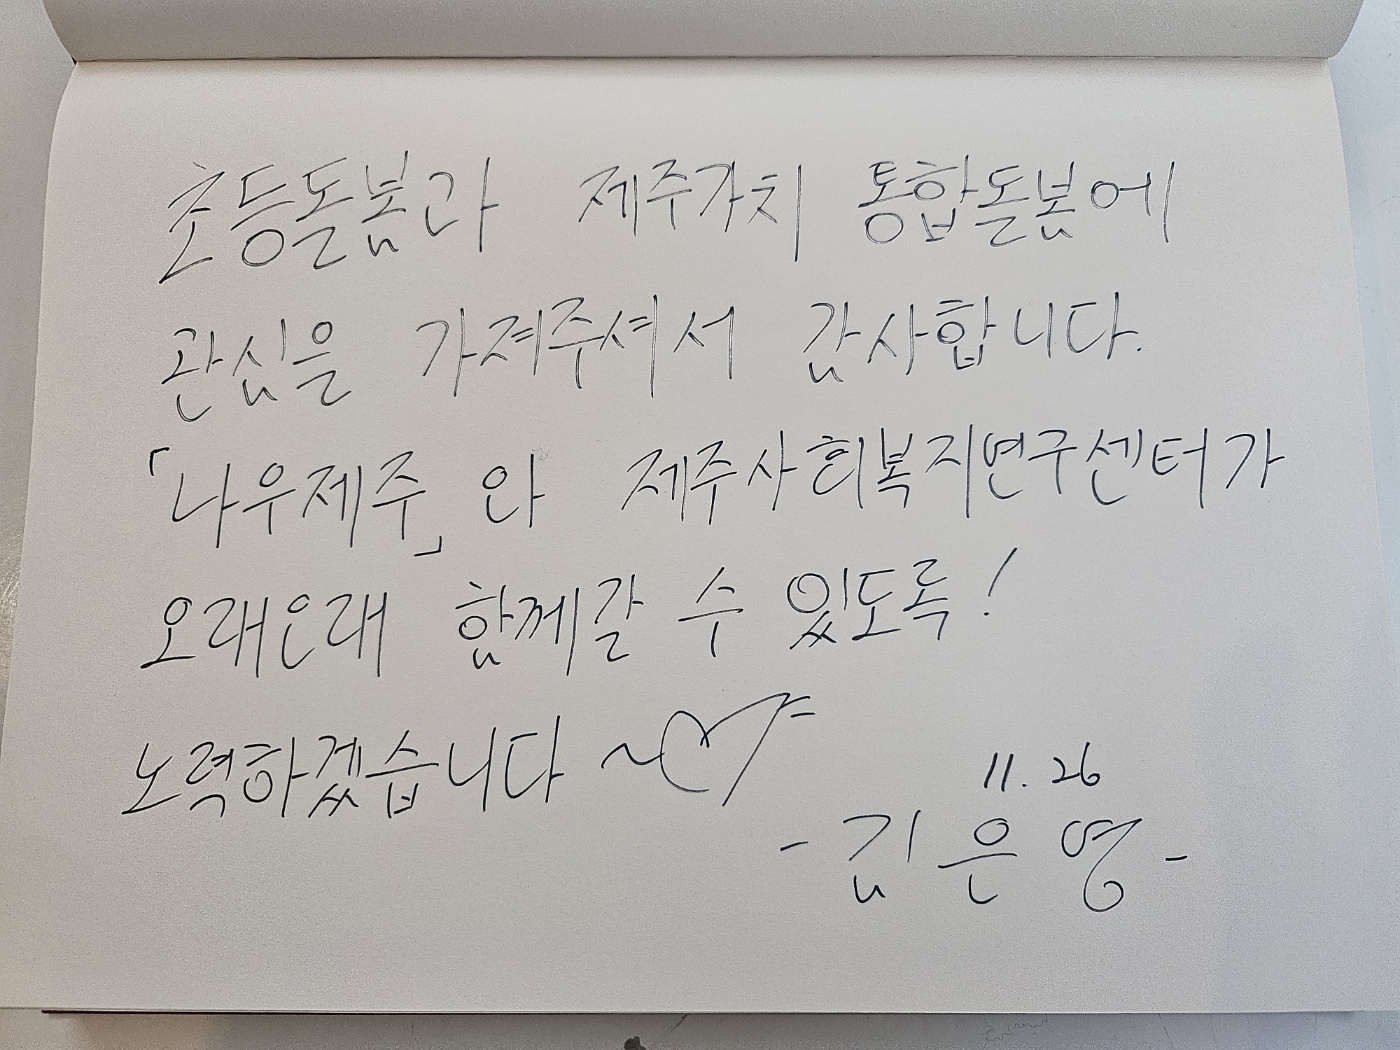 초등돌봄과 제주가치 통합돌봄에
관심을 가져주셔서 감사합니다.
「나우제주」와 제주사회복지연구센터가
오래오래 함께갈 수 있도록!
노력하겠습니다~♡
11. 26
- 김은영 -